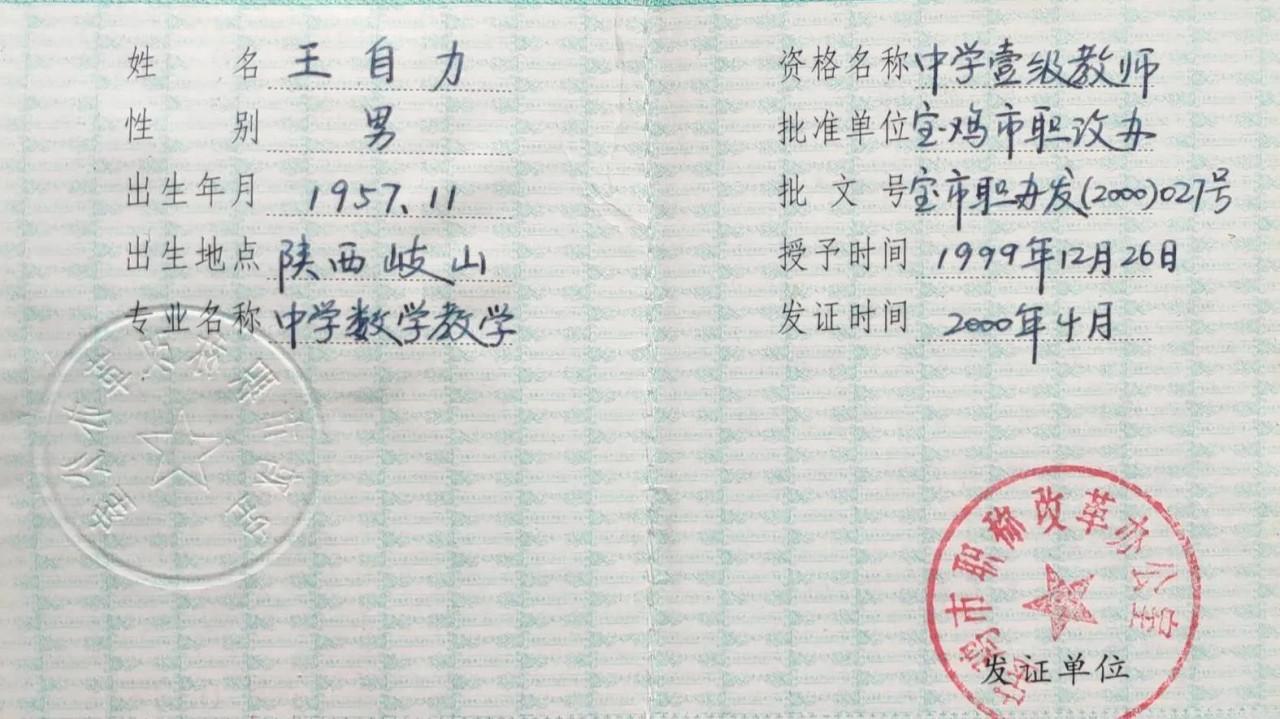 姓名 王自力
性别 男
出生年月 1957.11
出生地点 陕西岐山
专业名称 中学数学教学
资格名称 中学壹级教师
批准单位 宝鸡市职改办
批文号 宝市职办发(2000)027号
授予时间 1999年12月26日
发证时间 2000年4月
市职称改革办公室
发证单位